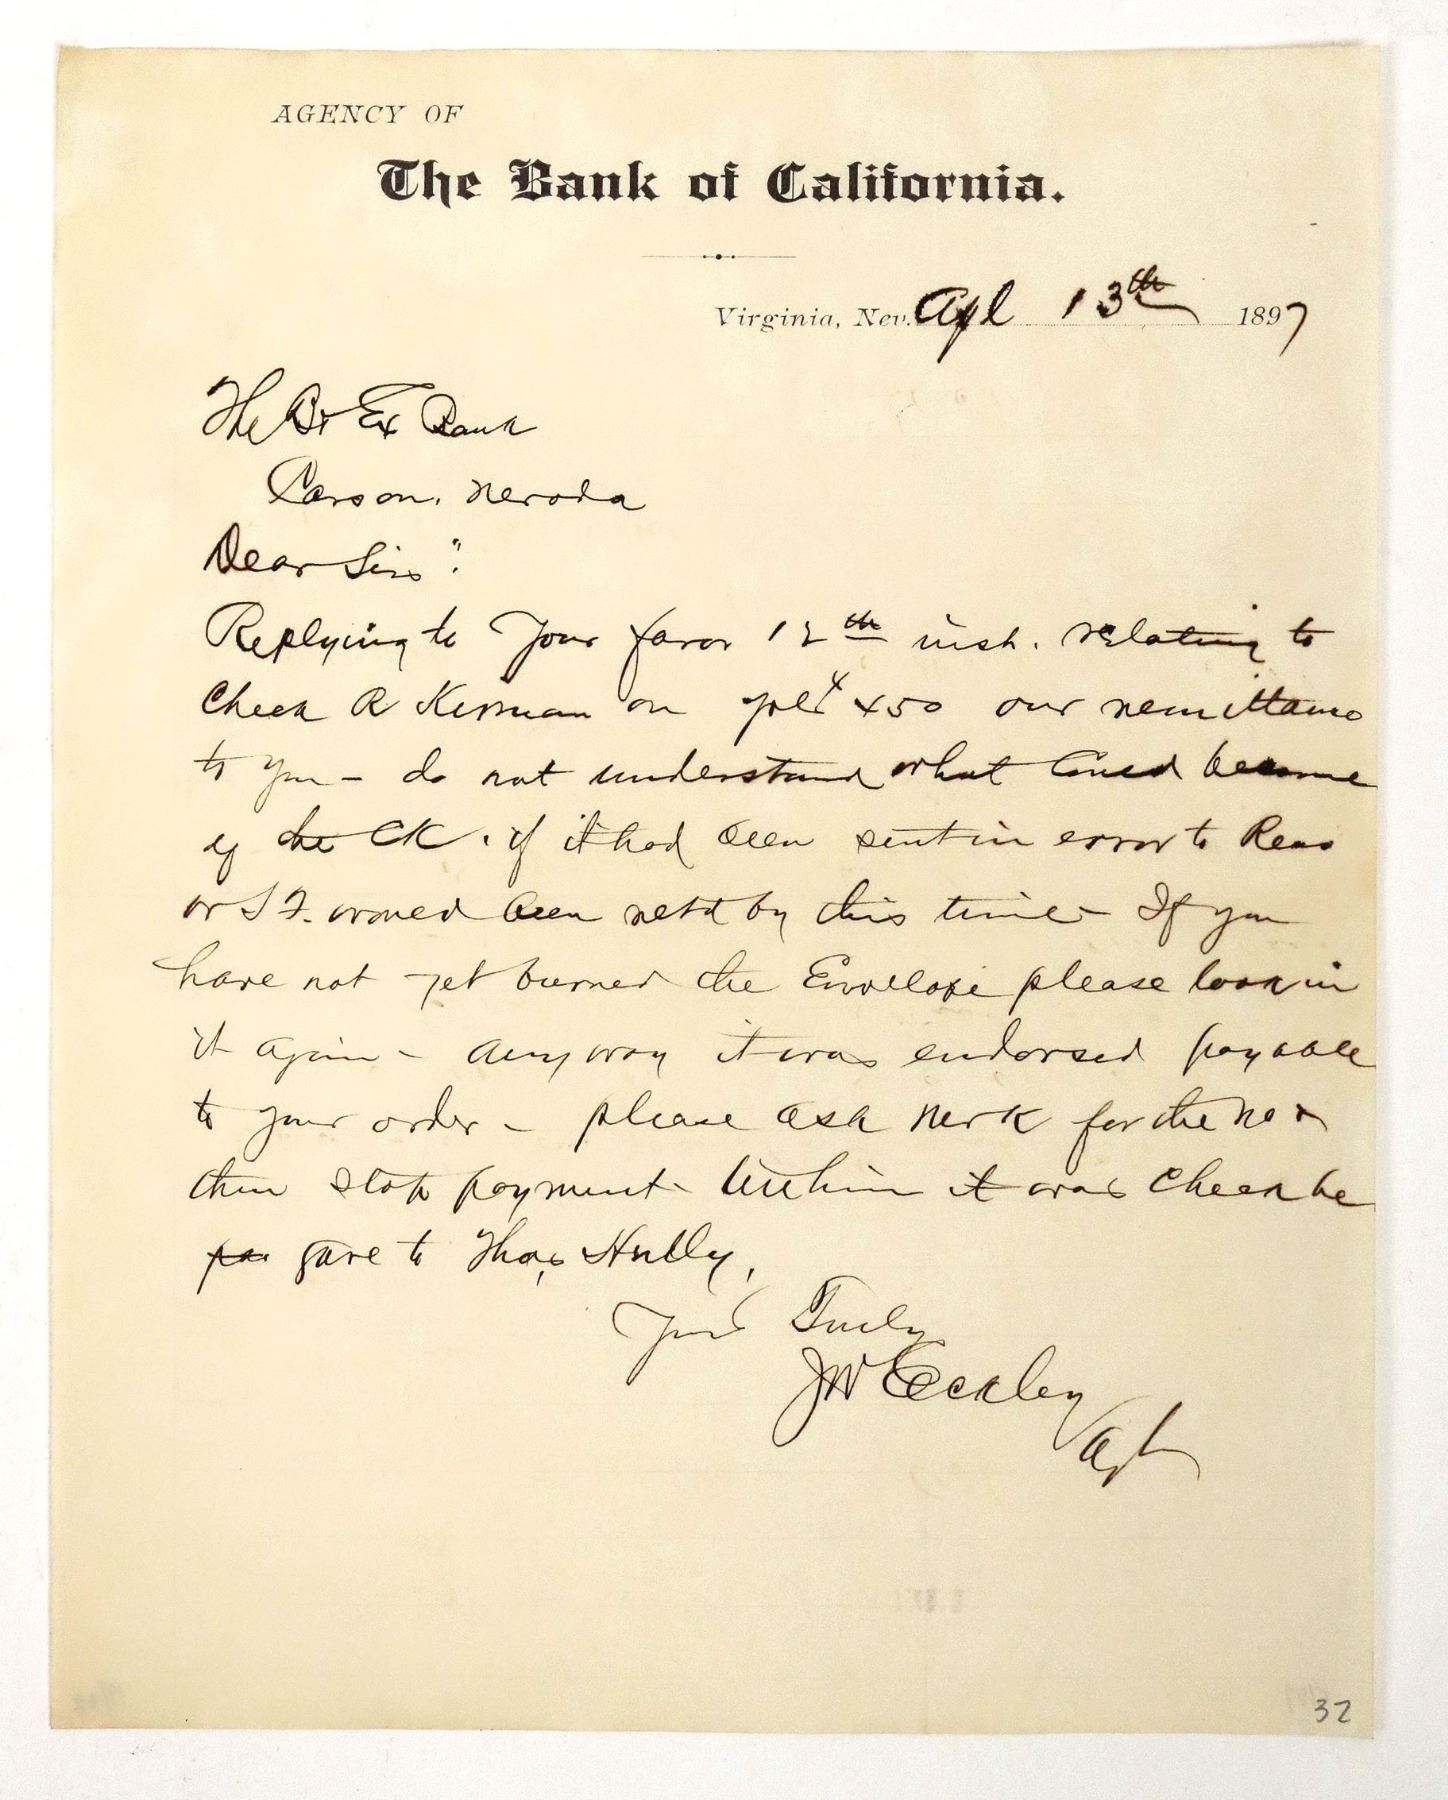 AGENCY OF
The Bank of California.
Virginia, Nev. Apl 13th 1897
The Bx Ex Bank
Carson, Nevada
Dear Sir":
Replying to Your favor 12th inst. relating to
Check R Kirman on our remittance
to you - do not understand what Could become
of the CK. if it had been sent in error to Reno
or S F. would been retd by this time - If you
have not yet burned the Envelope please look in
it again - anyway it was endorsed payable
to your order - please ask for the no &
then stop payment - it was Check he
gave to Thos,
Yours Truly
JW Eckley
Agt
32